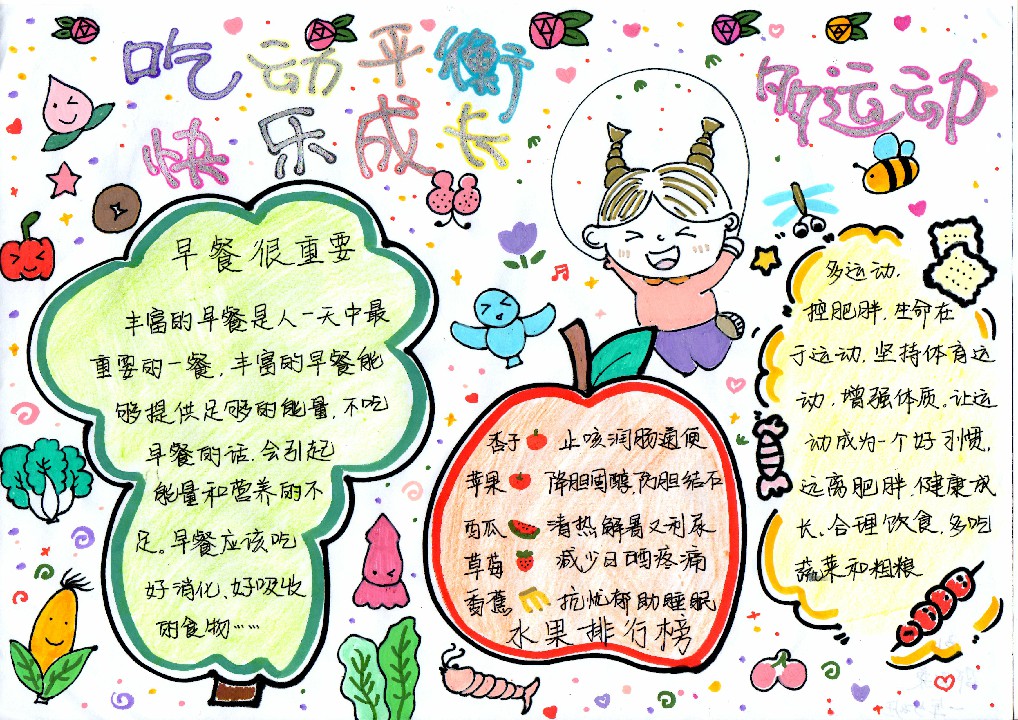 吃动平衡
快乐成长
多运动
早餐很重要
丰富的早餐是人一天中最
重要的一餐，丰富的早餐能
够提供足够的能量，不吃
早餐的话，会引起
能量和营养的不
足。早餐应该吃
好消化、好吸收
的食物……
杏子 止咳润肠通便
苹果 降胆固醇，防胆结石
西瓜 清热解暑又利尿
草莓 减少日晒疼痛
香蕉 抗忧帮助睡眠
水果排行榜
多运动，
控肥胖，生命在
于运动，坚持体育运
动，增强体质。让运
动成为一个好习惯，
远离肥胖，健康成
长、合理饮食，多吃
蔬菜和粗粮